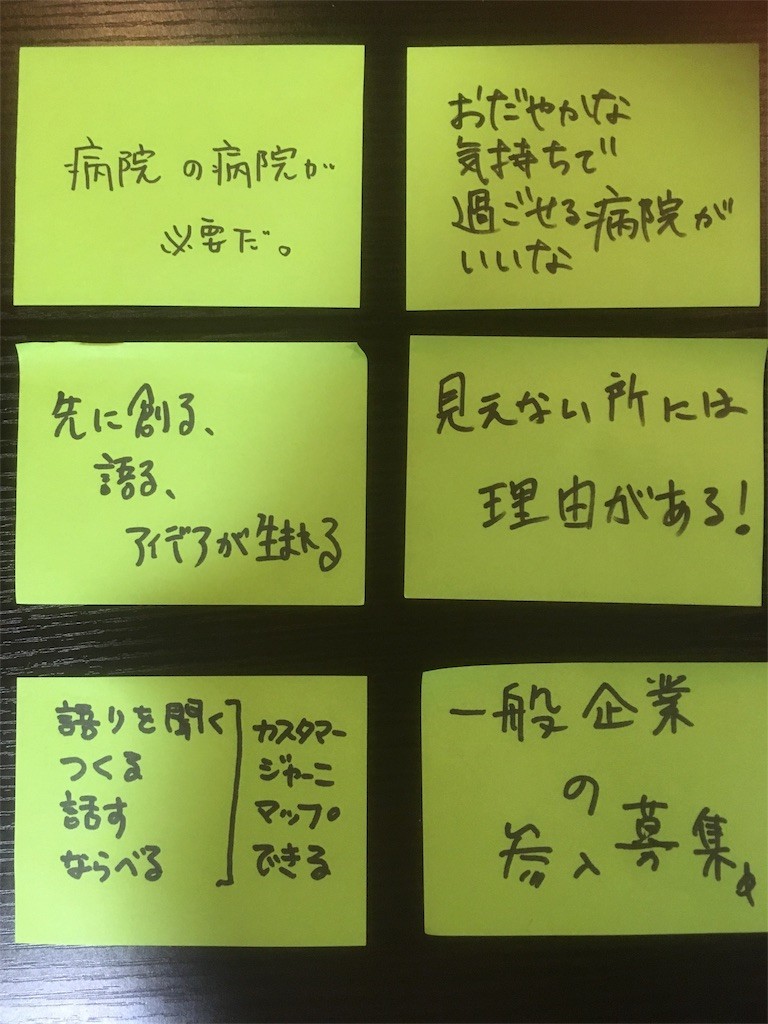 病院の病院が
必要だ。
おだやかな
気持ちで
過ごせる病院が
いいな
先に創る、
語る、
アイデアが生まれる
見えない所には
理由がある!
語りを聞く
つくる
話す
ならべる
カスタマー
ジャーニ
マップ
できる
一般企業
の
参入募集